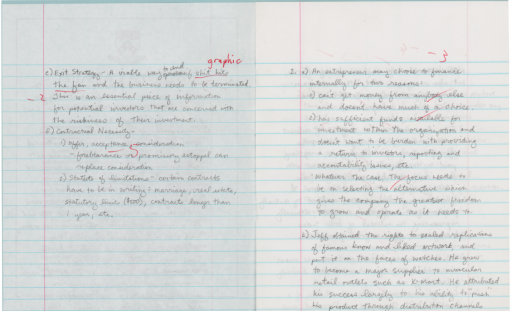 graphic
c) Exit Strategy - A viable way to end
operations, shit hits
the fan and the business needs to be terminated.
- 2 This is an essential piece of information
for potential investors that are concerned with
the riskiness of their investment.
d) Contractual Necessity -
1) offer, acceptance, consideration
- forbearance or promissory estoppel can
replace consideration
2) Statute of limitations - certain contracts
have to be in writing: marriage, real estate,
statutory limits ($500), contracts longer than
1 year, etc.
- 3
2. a) An entrepreneur may choose to finance
internally for two reasons:
1) can't get money from anyone else
and doesn't have much of a choice.
2) has sufficient funds available for
investment within the organization and
doesn't want to be burden with providing
a return to investors, reporting and
accountability issues, etc.
Whatever the case, the focus needs to
be to selecting the alternative which
gives the company the greatest freedom
to grow and operate as it needs to.
b) Jeff obtained the rights to sealed replications
of famous know and liked artwork, and
put it on the faces of watches. He grew
to become a major supplier to numerous
retail outlets such as K-Mart. He attributed
his success largely to his ability to "push"
his product through distribution channels